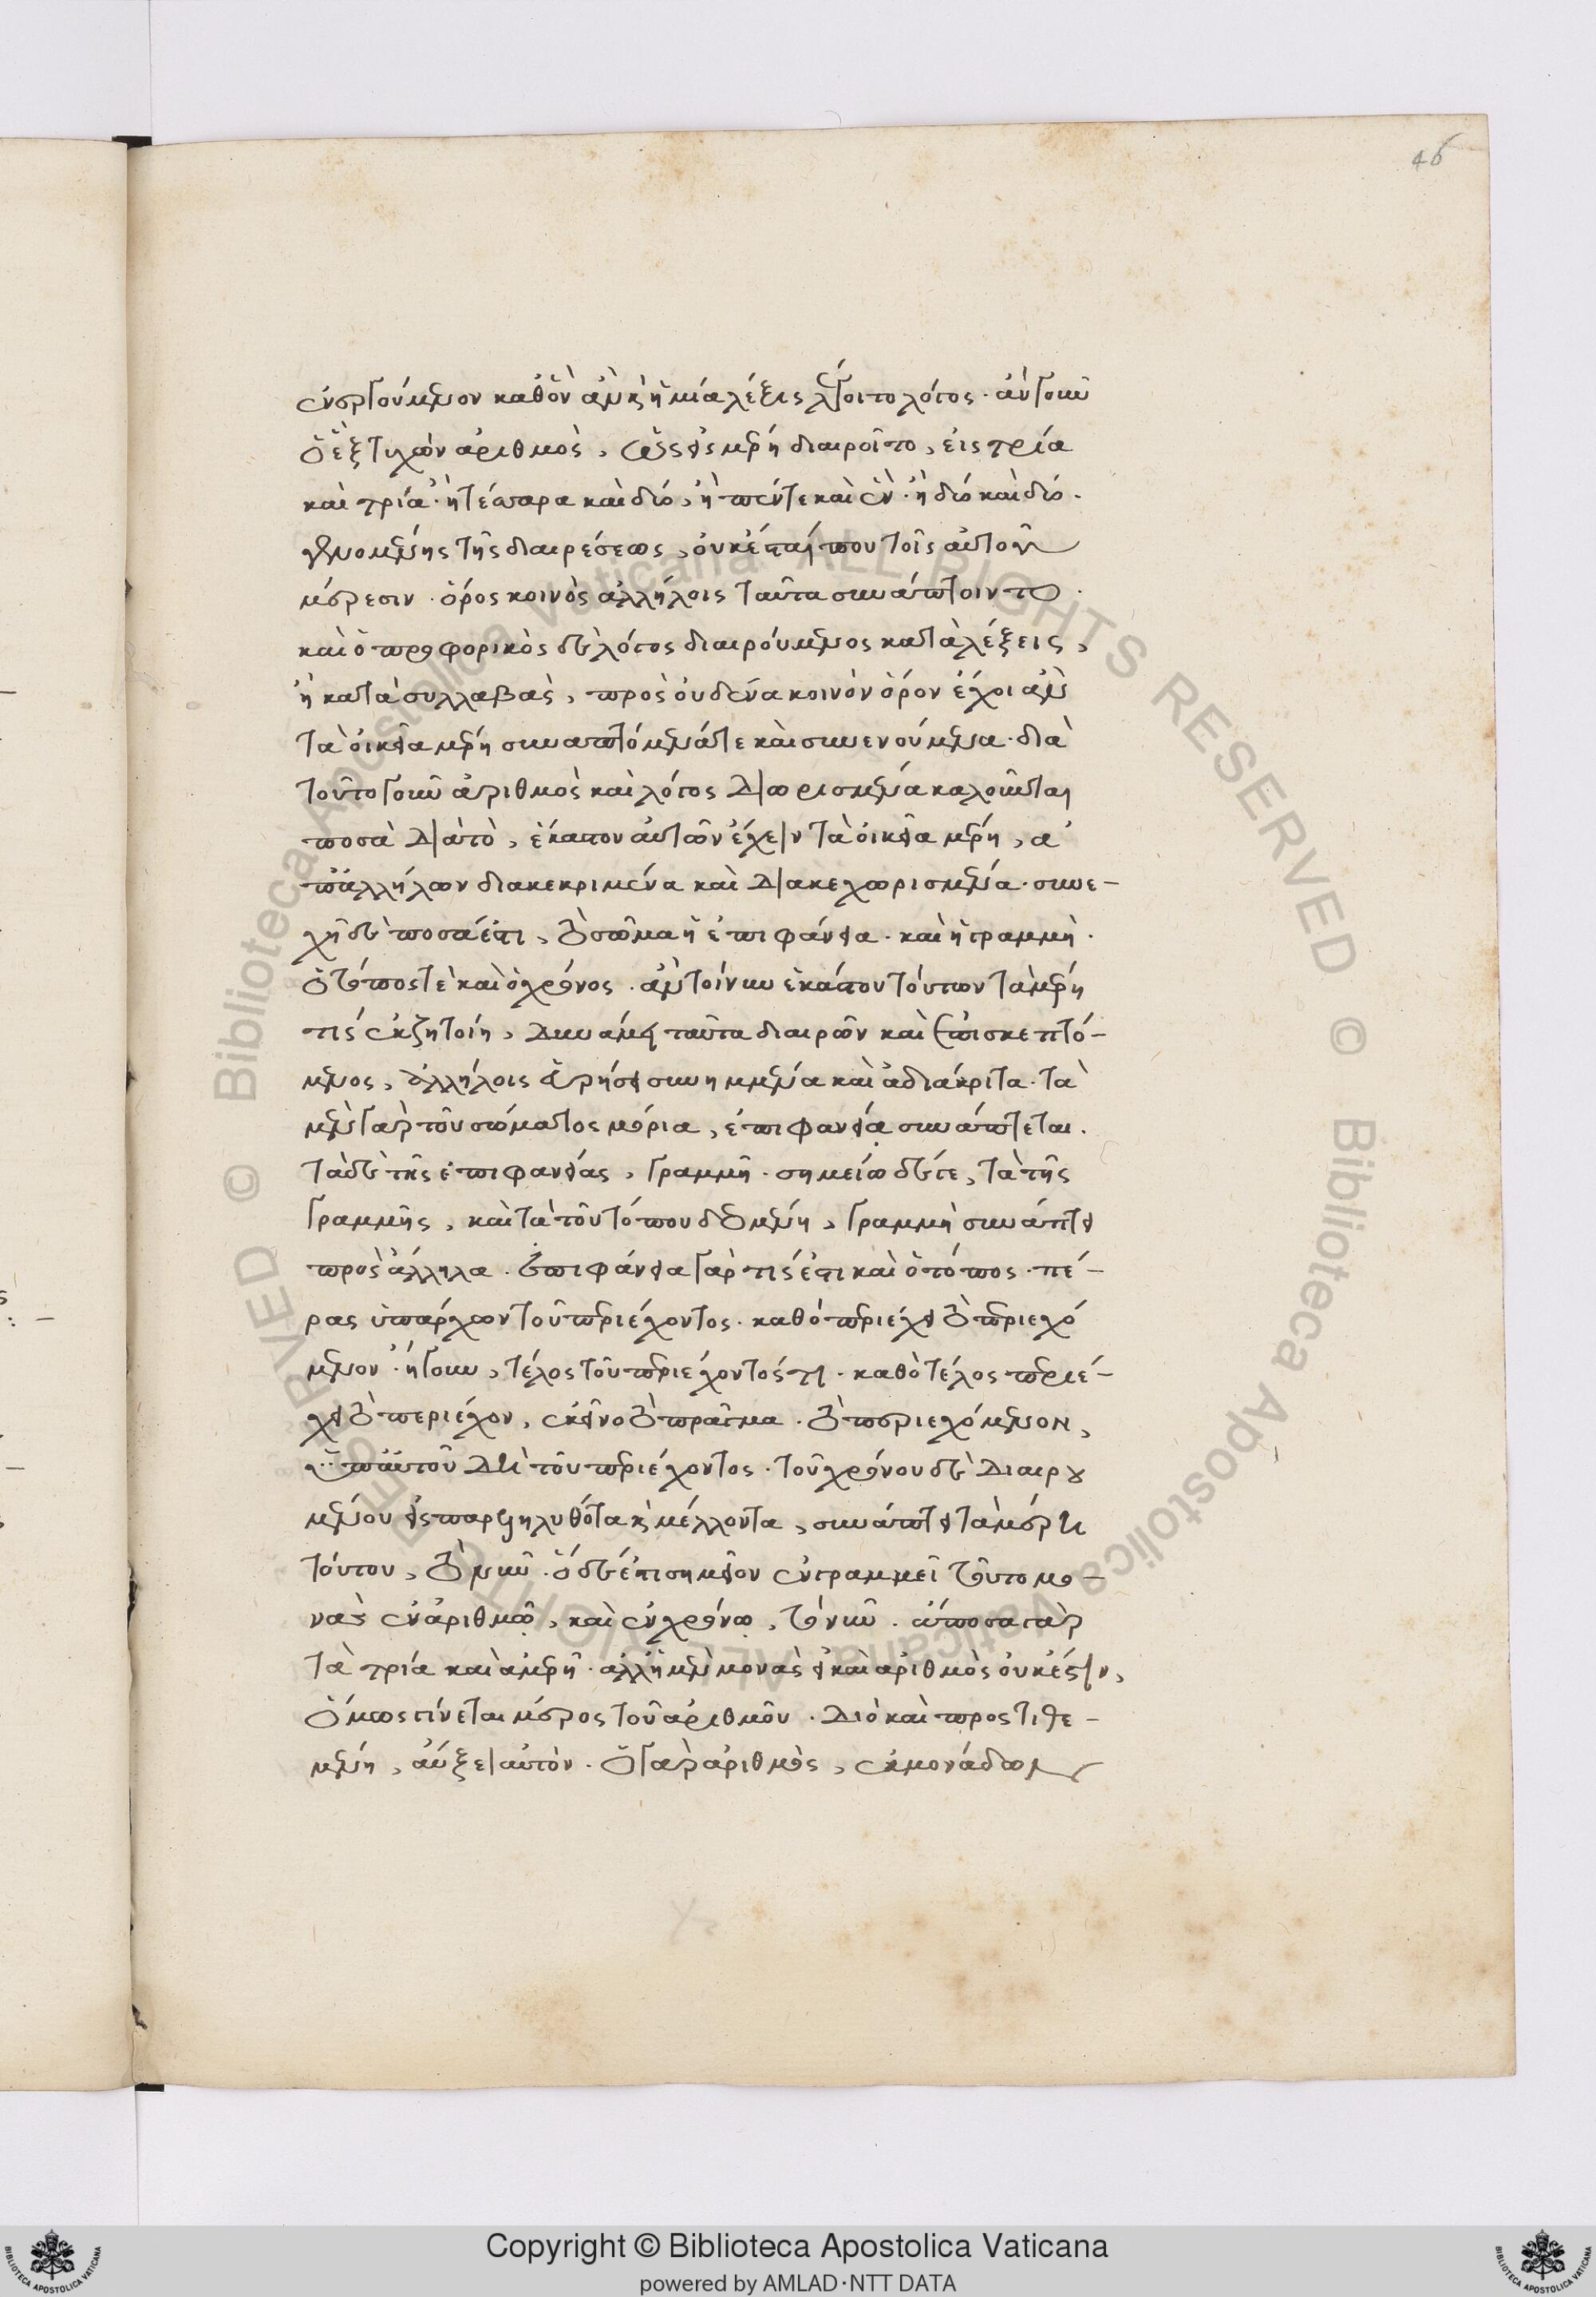 46
ἐνεργούμενον καθὸν ἂν καὶ ἡ μία λέξις λέγοιτο λόγος. ἂν γοῦν
ὁ ἓξ τυχὸν ἀριθμὸς, ὡς εἰς μέρη διαιροῖτο, εἰς τρία
καὶ τρία· ἢ τέσσαρα καὶ δύο, ἢ πέντε καὶ ἓν· ἢ δύο καὶ δύο.
γενομένης τῆς διαιρέσεως, οὐκ ἔσται που τοῖς αὐτοῦ
μέρεσιν. ὅρος κοινὸς ἀλλήλοις ταῦτα συνάπτοιντο.
καὶ ὁ προφορικὸς δὲ λόγος διαιρούμενος κατὰ λέξεις,
ἢ κατὰ συλλαβὰς, πρὸς οὐδένα κοινὸν ὅρον ἔχοι ἂν
τὰ οἰκεῖα μέρη συναπτόμενά τε καὶ συνενούμενα. διὰ
τοῦτο γοῦν ἀριθμὸς καὶ λόγος διωρισμένα καλοῦνται
ποσὰ διὰ τὸ, ἕκαστον αὐτῶν ἔχειν τὰ οἰκεῖα μέρη, ἀ
π' ἀλλήλων διακεκριμένα καὶ διακεχωρισμένα. συνε-
χῆ δὲ ποσά ἐστι, τὸ σῶμα ἡ ἐπιφάνεια. καὶ ἡ γραμμὴ.
ὁ τόπος τὲ καὶ ὁ χρόνος. ἂν τοίνυν ἑκάστου τούτων τὰ μέρη
τις ἐκζητοίη, ταῦτα διαιρῶν καὶ ἐπισκεπτό-
μενος, ἀλλήλοις εὑρήσει συνημμένα καὶ ἀδιάκριτα. τὰ
μὲν γὰρ τοῦ σώματος μόρια, ἐπιφανείᾳ συνάπτεται.
τὰ δὲ τῆς ἐπιφανείας, γραμμῇ. σημείῳ δέ τε, τὰ τῆς
γραμμῆς, καὶ τὰ τοῦ τόπου δὲ μένη, γραμμὴ συνάπτει
πρὸς ἄλληλα. ἐπιφάνεια γάρ τίς ἐστι καὶ ὁ τόπος. πέ-
ρας ὑπάρχων τοῦ περιέχοντος. καθὸ περιέχει τὸ περιεχό
μενον. ἤγουν, τέλος τοῦ περιέχοντός τι. καθὸ τέλος περιέ-
χει τὸ περιέχον, ἐκεῖνο τὸ πρᾶγμα. τὸ περιεχόμενον,
ὑπ' αὐτοῦ δὴ τοῦ περιέχοντος. τοῦ χρόνου δὲ διαιρου
μένου εἰς παρεληλυθότα καὶ μέλλοντα, συνάπτει τὰ μέρη
τούτου, τὸ νῦν. ὃ δέ ἐστι σημεῖον ἐν γραμμεῖ τοῦτο μο-
νὰς ἐν ἀριθμῷ, καὶ ἐν χρόνῳ, τὸ νῦν. ἄποσα γὰρ
τὰ τρία καὶ ἀμερῆ. ἀλλ' ἡ μὲν μονὰς εἰ καὶ ἀριθμὸς οὐκ ἔστιν,
ὅμως γίνεται μέρος τοῦ ἀριθμοῦ. διὸ καὶ προστιθε-
μένη, αὔξει αὐτὸν. ὁ γὰρ ἀριθμὸς, ἐκ μονάδων
Copyright © Biblioteca Apostolica Vaticana
powered by AMLAD·NTT DATA